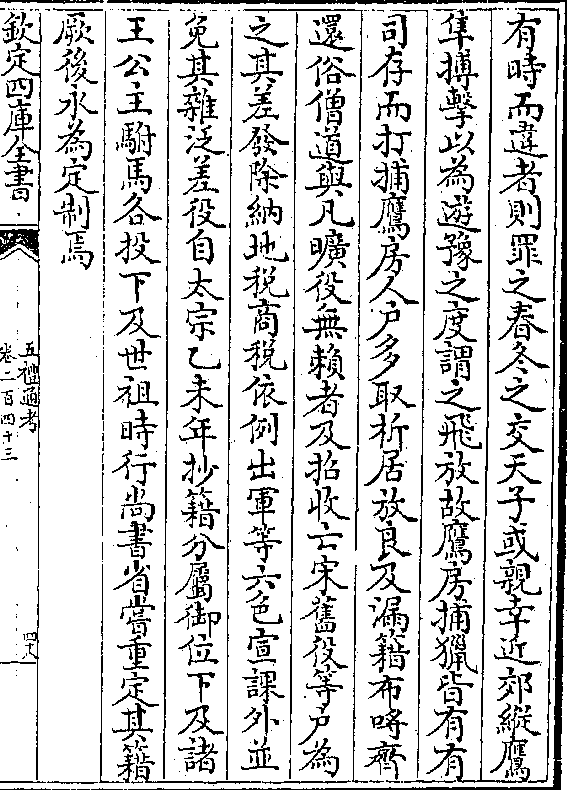 有時而違者則罪之春冬之交天子或親幸近郊縱鷹
隼搏擊以為遊豫之度謂之飛放故鷹房捕獵皆有有
司存而打捕鷹房人户多取析居放良及漏籍布哷齊
還俗僧道與凡曠役無賴者及招收亡宋舊役等户為
之其差發除納地税商税依例出軍等六色宣課外並
免其雜泛差役自太宗乙未年抄籍分屬御位下及諸
王公主駙馬各投下及世祖時行尚書省嘗重定其籍
厥後永為定制焉
欽定四庫全書
五禮通考
卷二百四十三
四八